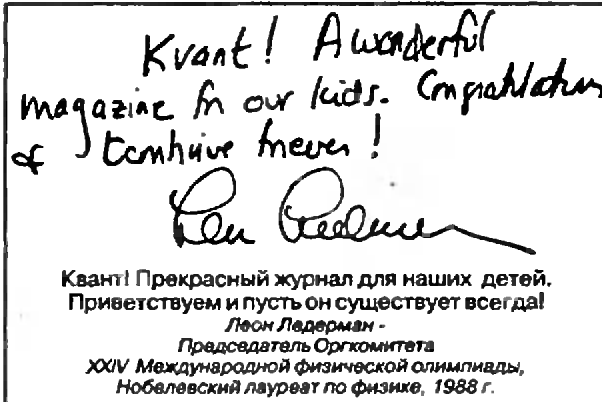 Kvant! A wonderful
magazine for our kids. Congratulations
& continue forever!
Leon Lederman
Квант! Прекрасный журнал для наших детей.
Приветствуем и пусть он существует всегда!
Леон Ледерман -
Председатель Оргкомитета
XXIV Международной физической олимпиады,
Нобелевский лауреат по физике, 1988 г.